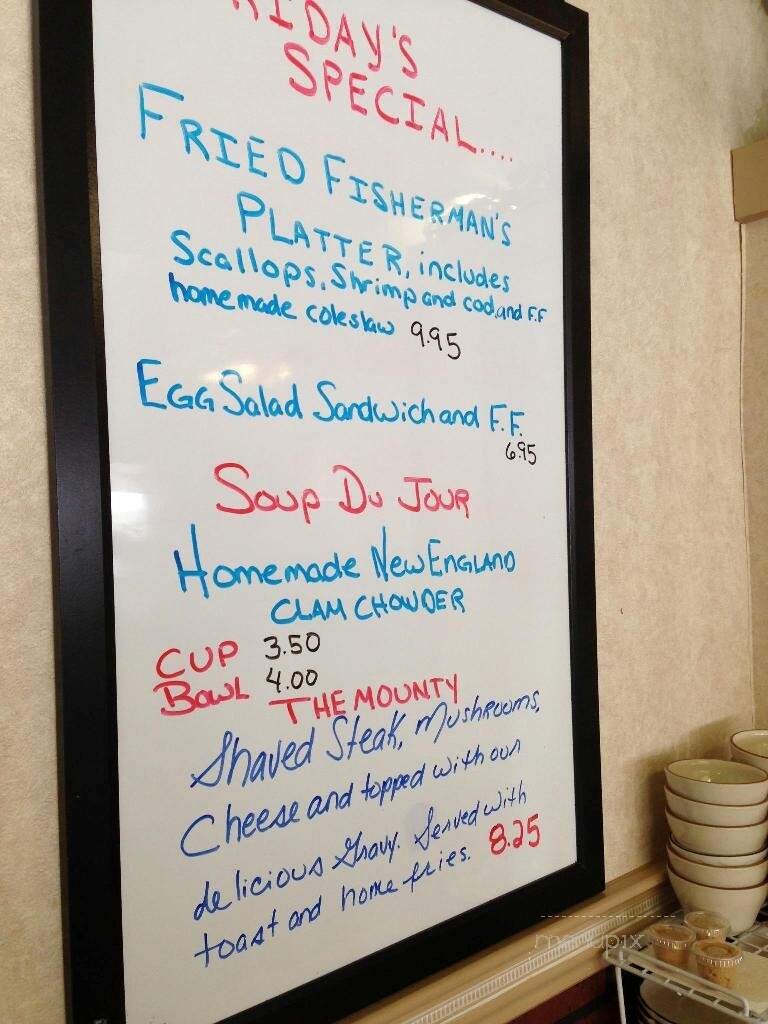 RIDAY'S
SPECIAL....
FRIED FISHERMAN'S
PLATTER, includes
Scallops, Shrimp and cod, and F.F
homemade coleslaw 9.95
EGG Salad Sandwich and F.F.
6.95
Soup Du Jour
Homemade New ENGLAND
CLAM CHOWDER
CUP 3.50
BOWL 4.00
THE MOUNTY
Shaved Steak, Mushrooms,
Cheese and topped with our
delicious Gravy. Served with
toast and home fries. 8.25
menupix